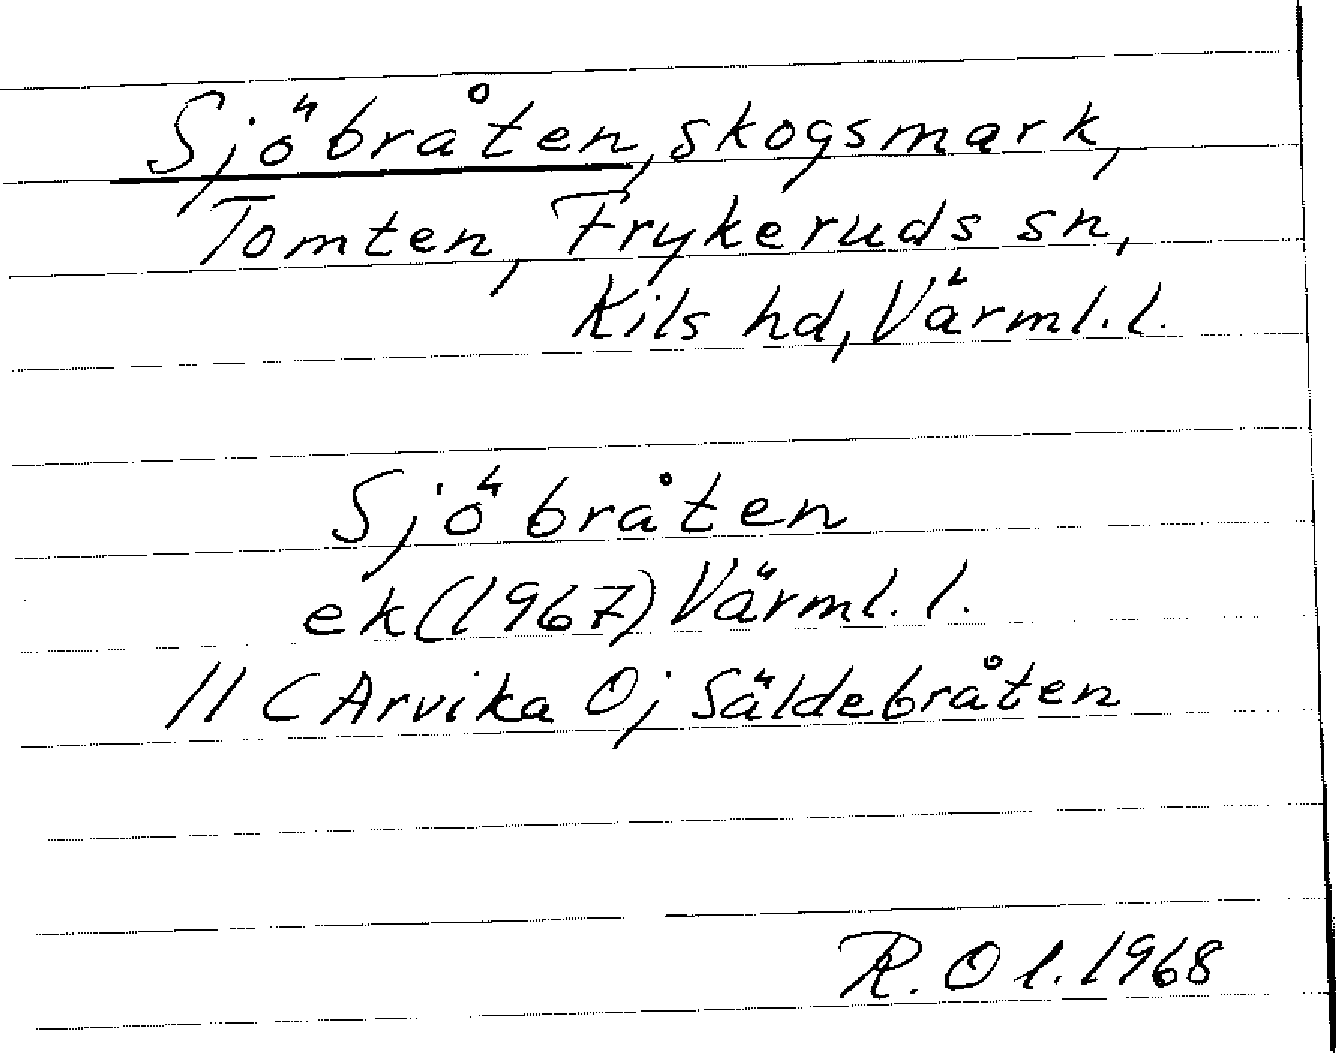 Sjöbråten, skogsmark,
Tomten, Frykeruds sn,
Kils hd, Värml. l.
Sjöbråten
ek (1967) Värml. l.
11 C Arvika Öj Säldebråten
R. O l. 1968